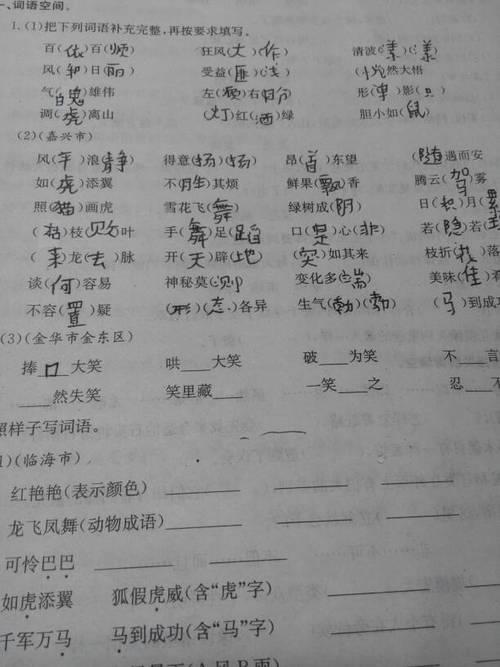 一、词语空间。
1.(1)把下列词语补充完整,再按要求填写。
百(依)百(顺) 狂风(大)(作) 清波(漾)(漾)
风(和)日(丽) 受益(匪)(浅) (恍)然大悟
气(魄)雄伟 左(顾)右(盼) 形(单)影(只)
调(虎)离山 (灯)红(酒)绿 胆小如(鼠)
(2)(嘉兴市)
风(平)浪(静) 得意(扬)(扬) 昂(首)东望 (随)遇而安
如(虎)添翼 不(胜)其烦 鲜果(飘)香 腾云(驾)雾
照(猫)画虎 雪花飞(舞) 绿树成(阴) 日(积)月(累
(粗)枝(败)叶 手(舞)足(蹈) 口(是)心(非) 若(隐)若
(来)龙(去)脉 开(天)辟(地) (突)如其来 枝折()落
谈(何)容易 神秘莫(测) 变化多(端) 美味(佳)
不容(置)疑 (形)(态)各异 生气(勃)(勃) (马)到成
(3)(金华市金东区)
捧口大笑 哄___大笑 破___为笑 不___言
___然失笑 笑里藏___ 一笑___之 忍___不
照样子写词语。
1)(临海市)
红艳艳(表示颜色)
龙飞凤舞(动物成语)
可怜巴巴
如虎添翼 狐假虎威(含“虎”字)
千军万马 马到成功(含“马”字)